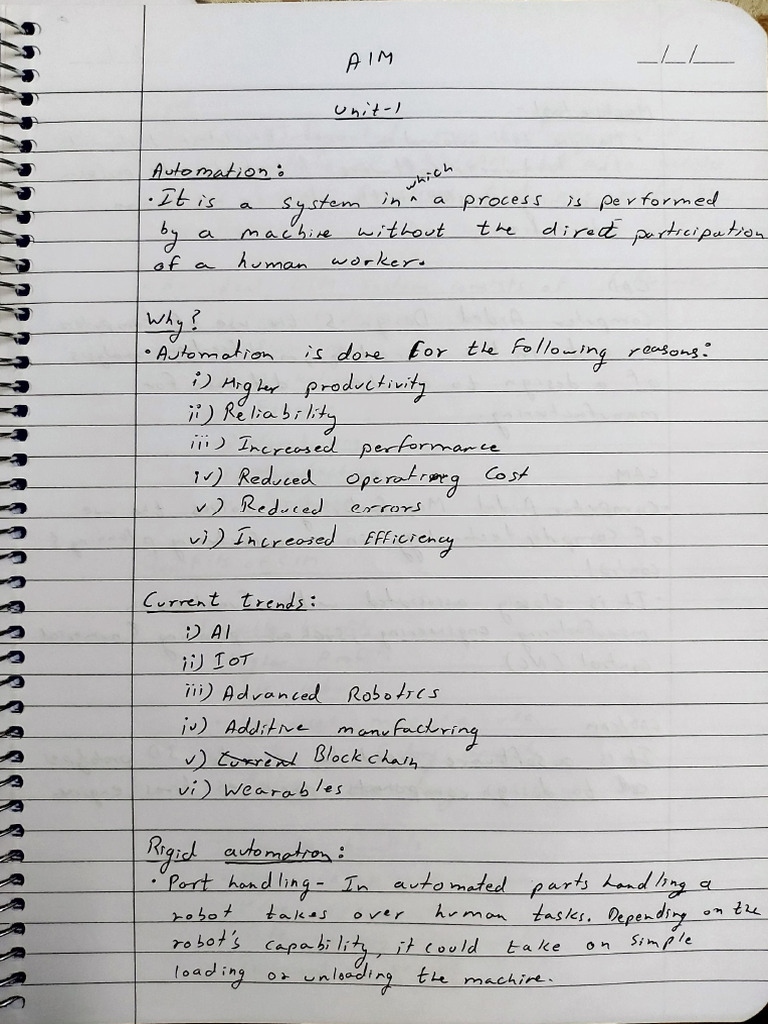 AIM
__/__/____
Unit-1
Automation:
• It is a system in which a process is performed
by a machine without the direct participation
of a human worker.
Why?
• Automation is done for the following reasons:
i) Higher productivity
ii) Reliability
iii) Increased performance
iv) Reduced operating Cost
v) Reduced errors
vi) Increased Efficiency
Current trends:
i) AI
ii) IoT
iii) Advanced Robotics
iv) Additive manufacturing
v) Current Blockchain
vi) Wearables
Rigid automation:
• Part handling - In automated parts handling a
robot takes over human tasks. Depending on the
robot's capability, it could take on simple
loading or unloading the machine.